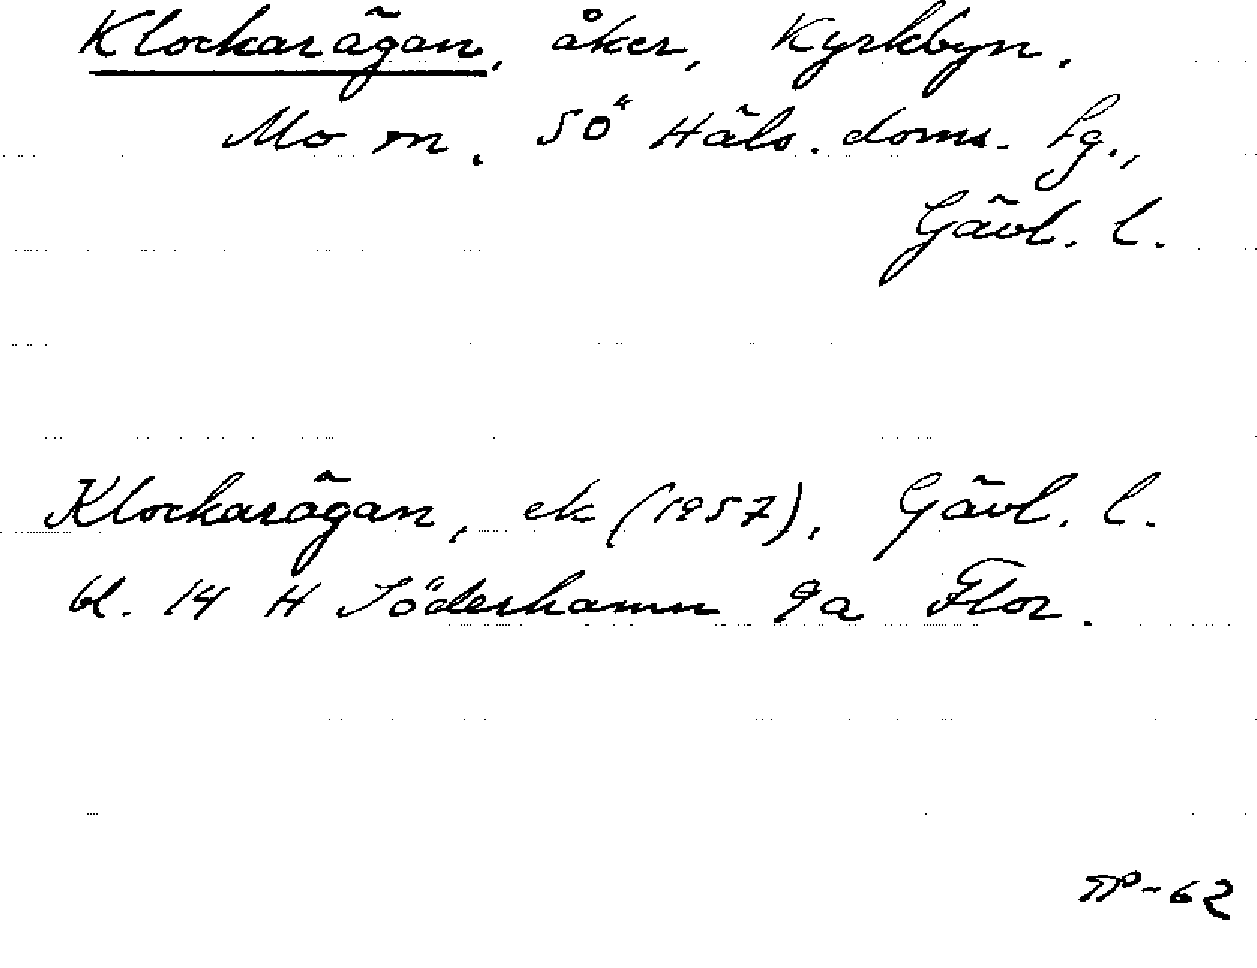 Klockarägan, åker, Kyrkbyn.
Mo sn. Sö Häls. doms. fg.,
Gävl. l.
Klockarägan, ek (1957), Gävl. l.
bl. 14 H Söderhamn 9a Flor.
TP-62